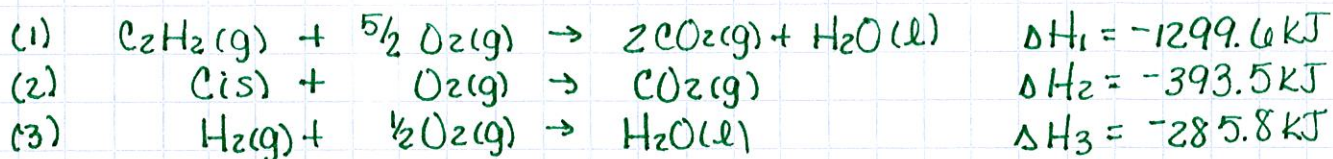 (1) C2H2(g) + 5/2 O2(g) → 2CO2(g) + H2O(l) ΔH1 = -1299.6 kJ
(2) C(s) + O2(g) → CO2(g) ΔH2 = -393.5 kJ
(3) H2(g) + 1/2 O2(g) → H2O(l) ΔH3 = -285.8 kJ